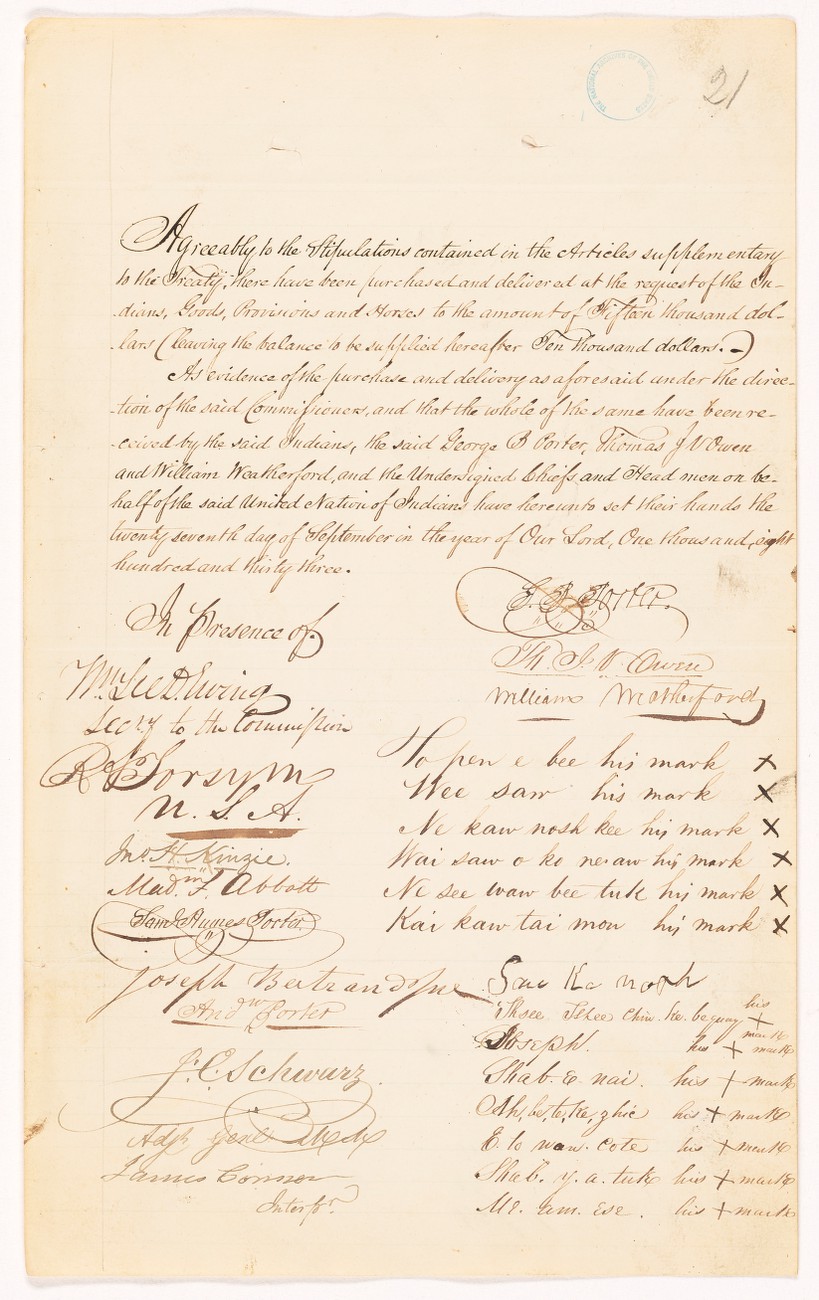 21
Agreeably to the Stipulations contained in the Articles supplementary
to the Treaty, there have been purchased and delivered at the request of the In-
-dians, Goods, Provisions and Horses to the amount of Fifteen thousand dol-
-lars (leaving the balance to be supplied hereafter Ten thousand dollars.-)
As evidence of the purchase and delivery as aforesaid under the direc-
-tion of the said Commissioners, and that the whole of the same have been re-
-ceived by the said Indians, the said George B Porter, Thomas J V Owen
and William Weatherford, and the Undersigned Chiefs and Head men on be-
half of the said United Nation of Indians have hereunto set their hands the
twenty seventh day of September in the year of Our Lord, One thousand, eight
hundred and thirty three.
G. B. Porter
Th. J. V. Owen
William Weatherford
In presence of
Wm Lee D. Ewing
Secry to the Commission
R. A. Forsyth
U. S. A.
Jno H. Kinzie.
Mad. F. Abbott
Saml Humes Porter
Joseph Bertrand Jnr
Andw Porter
J. C. Schwarz.
Adjt Genl M M
James Connor
Interpr
To pen e bee his mark X
Wee saw his mark X
Ne kaw nosh kee his mark X
Wai saw o ko ne aw his mark X
Ne see waw bee tuk his mark X
Kai kaw tai mon his mark X
Saw Ka nosh
Thsee Thee chin ke beguay his + mark
Joseph. his + mark
Shab. e. nai. his + mark
Ah, be, te, ke, zhic his + mark
E. to waw. cote his + mark
Shab. y. a. tuk his + mark
Me. am. ese. his + mark